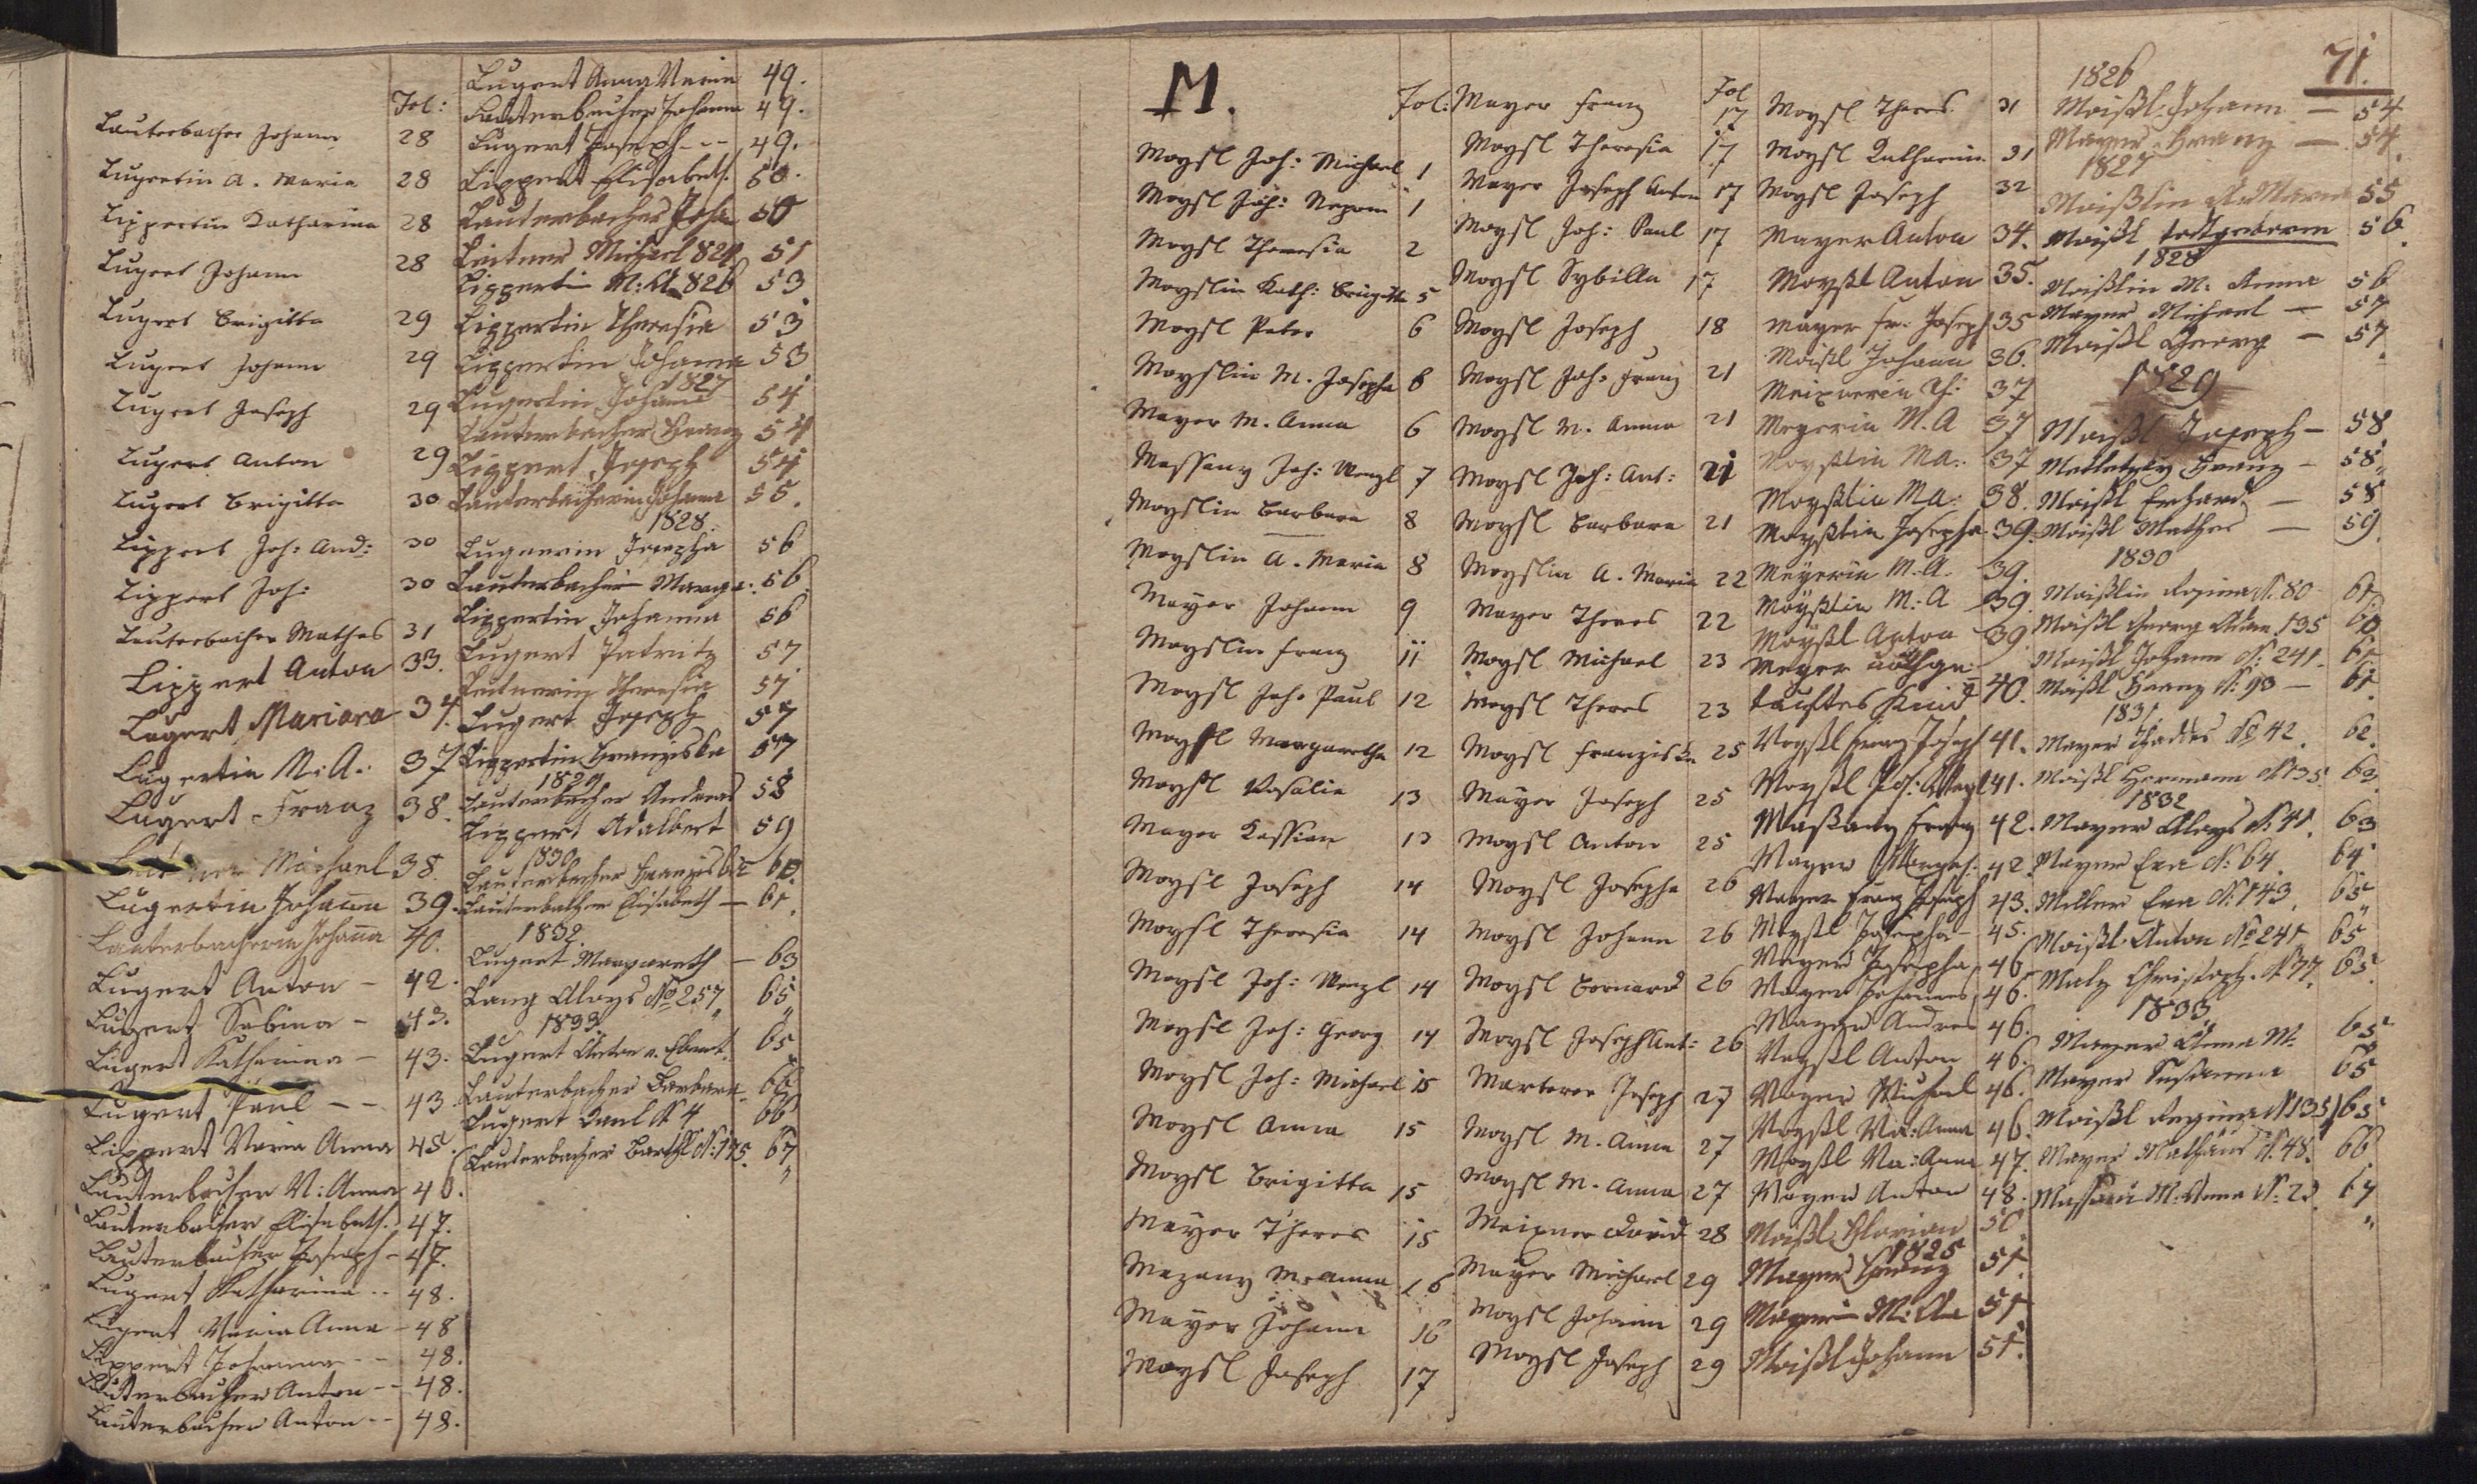 Fol:
Lauterbacher Johann 28
Lugertin A. Maria 28
Lippertin Katharina 28
Lugert Johann 28
Lugert Brigitta 29
Lugert Johann 29
Lugert Joseph 29
Lugert Anton 29
Lugert Brigitta 30
Lippert Joh: And: 30
Lippert Joh: 30
Lauterbacher Mathes 31
Lippert Anton 33.
Lugert Mariana 37.
Lugertin M: A: 37
Lugert Franz 38.
Michael 38.
Lugertin Johanna 39.
Lauterbacherin Johanna 40.
Lugert Anton - 42.
Lugert Sabina - 43.
Lugert Katharina - 43.
Lugert Paul - - 43
Lippert Maria Anna 45.
Lauterbacher M: Anna 46.
Lauterbacher Elisabeth. 47.
Lauterbacher Joseph - 47.
Lugert Katharina - - 48.
Lugert Maria Anna - 48
Lippert Johanna - - 48.
Lauterbacher Anton - - 48.
Lauterbacher Anton - - 48.
Lugert Anna Maria 49.
Lauterbacher Johann 49.
Lugert Joseph - - 49.
Lippert Elisabeth. 50.
Lauterbacher Joha 50
Leitner Michael 824 51
Lippertin M: A 826 53
Lippertin Theresia 53
Lippertin Johanna 53
1827
Lugertin Johanna 54
Lauterbacher Franz 54
Lippert Joseph 54
Lauterbacherin Johanna 55.
1828.
Lugnerin Josepha 56
Lauterbacherin Marga: 56
Lippertin Johanna 56
Lugert Patritz 57
Leitnerin Theresia 57
Lugert Joseph 57
Lippertin Franziska 57
1829
Lauterbacher Andreas 58
Lippert Adalbert 59
1830
Lauterbacher Franziska 60
Lauterbacher Elisabeth - 61.
1832
Lugert Margareth - 63
Lang Aloys No 257 65
1833
Lugert Anton 65
Lauterbacher Barbara 66
Lugert Paul N 4 66
Lauterbacher Barthl N: 175. 67
M.
71.
Fol:
Moysl Joh: Michael 1
Moysl Joh: Nepom 1
Moysl Theresia 2
Moyslin Kath: Brigitta 5
Moysl Peter 6
Moyslin M. Josepha 6
Mayer M. Anna 6
Massany Joh: Wenzl 7
Moyslin Barbara 8
Moyslin A. Maria 8
Mayer Johann 9
Moyslin Franz 11
Moysl Joh: Paul 12
Moysl Margaretha 12
Moysl Rosalia 13
Mayer Kassian 13
Moysl Joseph 14
Moysl Theresia 14
Moysl Joh: Wenzl 14
Moysl Joh: Georg 14
Moysl Joh: Michael 15
Moysl Anna 15
Moysl Brigitta 15
Mayer Theres 15
Mazany M: Anna 16
Mayer Johann 16
Moysl Joseph 17
Fol
Mayer Franz 17
Moysl Theresia 17
Mayer Joseph Anton 17
Moysl Joh: Paul 17
Moysl Sybilla 17
Moysl Joseph 18
Moysl Joh: Franz 21
Moysl M. Anna 21
Moysl Joh: Ant: 21
Moysl Barbara 21
Moyslin A. Maria 22
Mayer Theres 22
Moysl Michael 23
Moysl Theres 23
Moysl Franziska 25
Mayer Joseph 25
Moysl Anton 25
Moysl Josepha 26
Moysl Johann 26
Moysl Bernard 26
Moysl Joseph Ant: 26
Marterer Joseph 27
Moysl M. Anna 27
Moysl M. Anna 27
Meixner David 28
Mayer Michael 29
Moysl Johann 29
Moysl Joseph 29
Moysl Theres 31
Moysl Katharina 31
Moysl Joseph 32
Mayer Anton 34.
Moyßl Anton 35.
Mayer Fr. Joseph 35
Moißl Johann 36.
Meixnerin Th: 37
Meyerin M. A 37
Moyßlin Ma: 37
Moyßlin Ma: 38.
Moyßlin Josepha 39.
Meyerin M. A. 39.
Moyßlin M: A 39.
Moyßl Anton 39
Meyer nothge-
tauftes Kind 40.
Moyßl Franz Joseph 41.
Moyßl Jos: 41.
Maßany Franz 42.
Mayer Margar. 42.
Mayer Franz Joseph 43.
Moyßl Josepha - 45.
Mayer Josepha 46
Mayer Johannes 46.
Mayer Andres 46.
Moyßl Anton 46.
Mayer Michael 46.
Moyßl Ma: Anna 46.
Moyßl Ma: Anna 47.
Mayer Anton 48.
Moißl Florian 50
1825
Mayer Franz 51
Mayerin M: An 51
Moißl Johann 51.
1826
Moißl Johann - 54
Mayer Franz - 54.
1827
Moißlin A: Maria 55
Moißl todtgeboren 56
1828
Moißlin M. Anna 56
Mayer Michael - 57
Moißl Georg - 57
1829
Moißl Joseph - 58
Franz - 58
Moißl Erhard - 58
Moißl Mathes - 59
1830
Moißlin Regina N. 80 61.
Moißl Georg Adam 135 60
Moißl Johann N: 241 - 61
Moißl Franz N: 93 - 61
1831
Mayer Thaddes No 42. 62.
Moißl Hermann N 135 63.
1832
Mayer Aloys N: 41. 63
Mayer Eva N: 64. 64
Miller Eva N: 143. 65
Moißl Anton No 241 65
Christoph. N 77. 65
1833
Mayer Anna M. 65
Mayer Susanna 65
Moißl Regina N 135 65
Mayer Mathäus N. 48. 66
M: Anna N: 23. 67